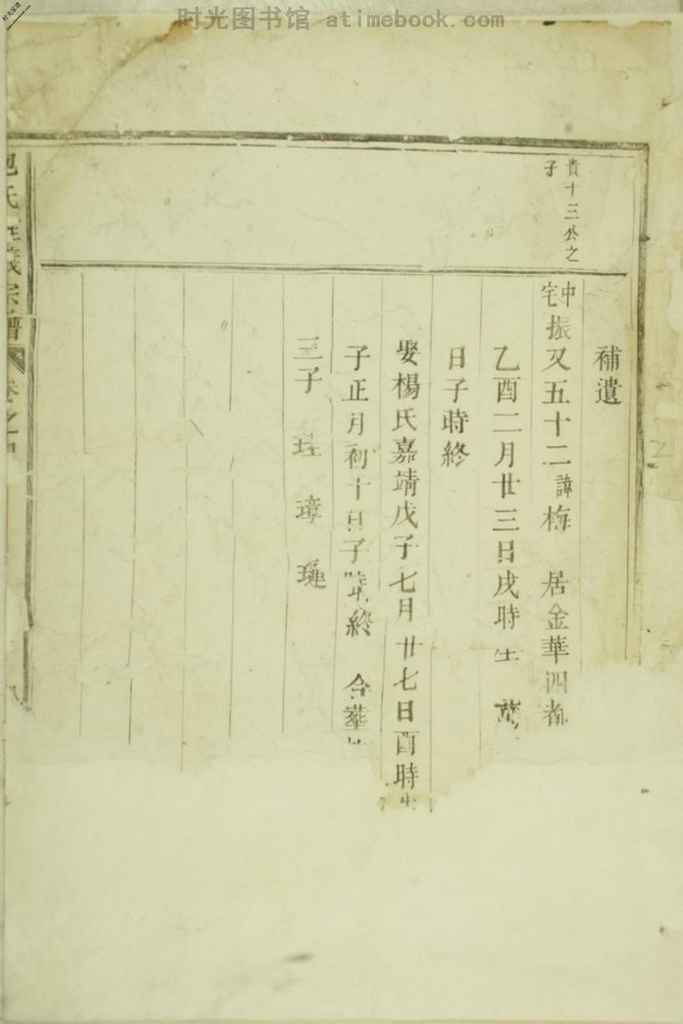 时光图书馆 atimebook.com
貴十三公之
子
補遺
中宅振又五十二諱梅 居金華四都
乙酉二月廿三日戌時生 萬
日子時終
娶楊氏嘉靖戊子七月廿七日酉時生
子正月初十日子時終 合葬
三子 璋
氏 宗譜 卷之